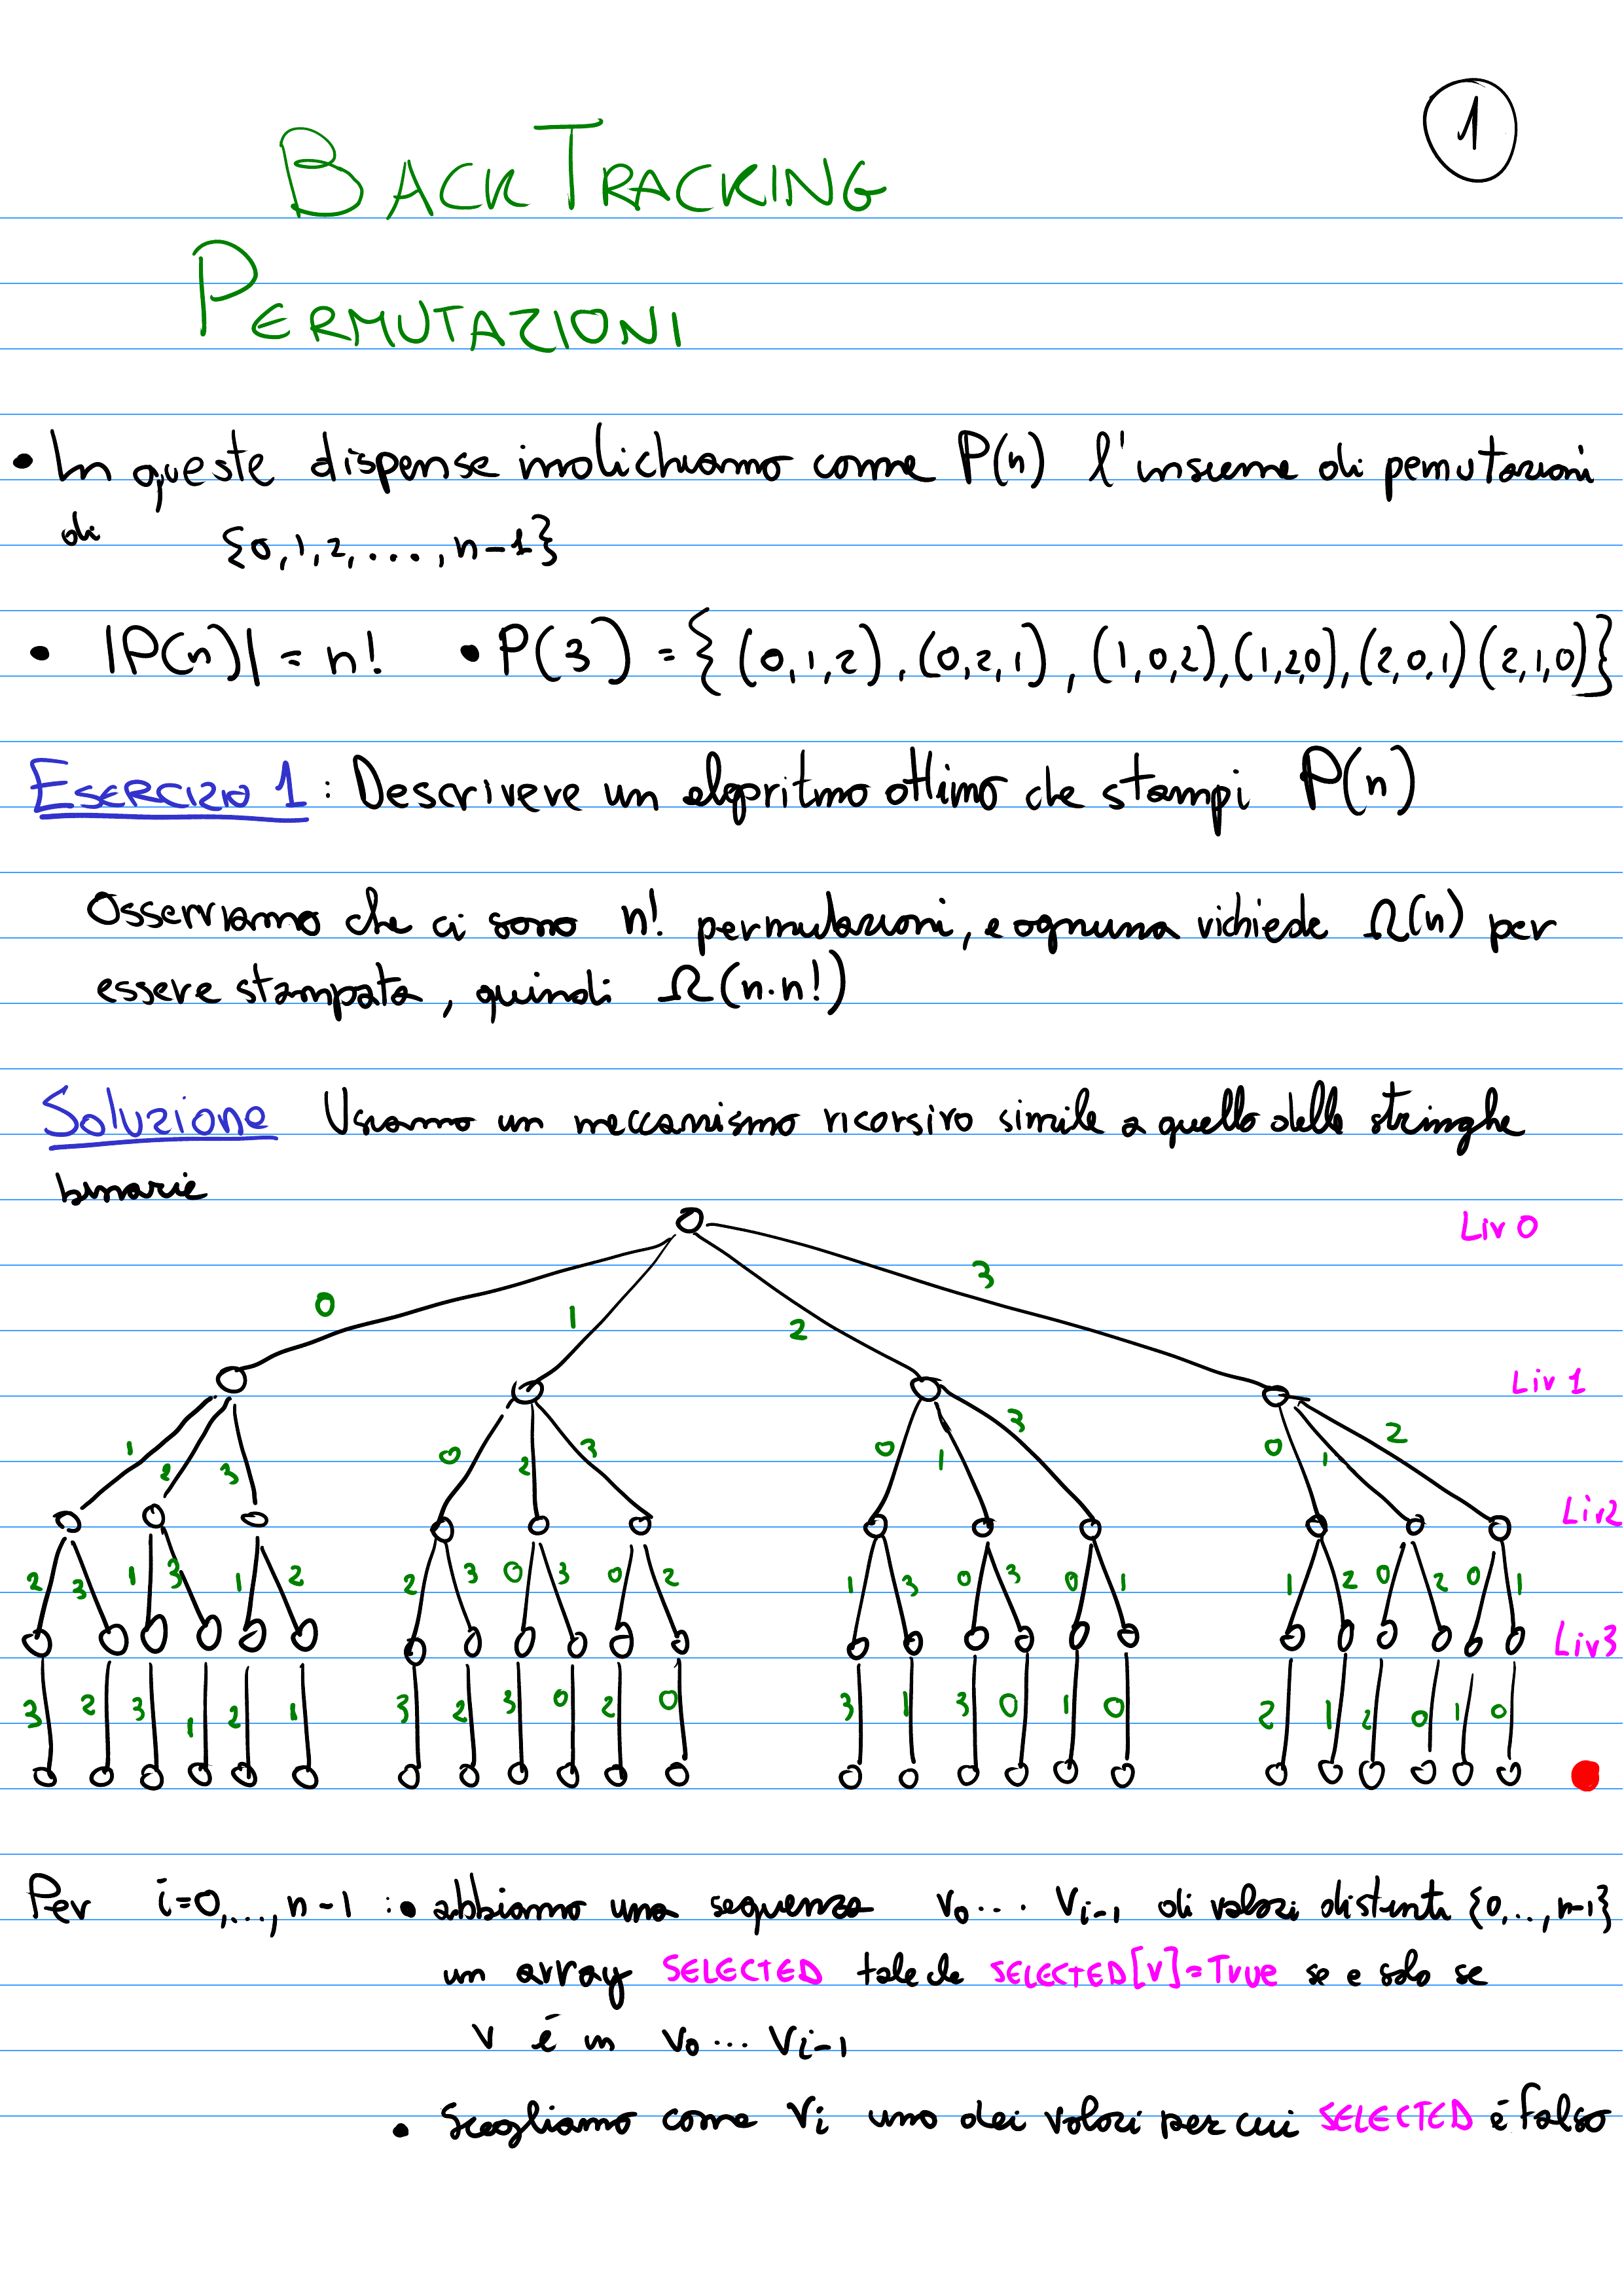 1
BACKTRACKING
PERMUTAZIONI
• In queste dispense indichiamo come P(n) l'insieme di pemutazioni
di {0,1,2,...,n-1}
• |P(n)| = n! • P(3) = {(0,1,2),(0,2,1),(1,0,2),(1,2,0),(2,0,1)(2,1,0)}
ESERCIZIO 1: Descrivere un algoritmo ottimo che stampi P(n)
Osserviamo che ci sono n! permutazioni, e ognuna richiede Ω(n) per
essere stampata, quindi Ω(n·n!)
Soluzione Usiamo un meccanismo ricorsivo simile a quello delle stringhe
binarie
Liv 0
0 1 2 3
Liv 1
1 2 3 0 2 3 0 1 3 0 1 2
Liv2
2 3 1 3 1 2 2 3 0 3 0 2 1 3 0 3 0 1 1 2 0 2 0 1
Liv3
3 2 3 1 2 1 3 2 3 0 2 0 3 1 3 0 1 0 2 1 2 0 1 0
Per i=0,...,n-1 : • abbiamo una sequenza v0... vi-1 di valori distinti {0,..,n-1}
un array SELECTED tale che SELECTED[v]=True se e solo se
v è in v0...vi-1
• Scegliamo come vi uno dei valori per cui SELECTED è falso